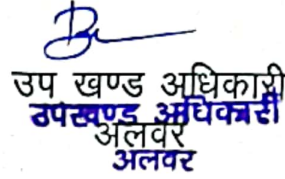 उप खण्ड अधिकारी
उपखण्ड अधिकारी
अलवर
अलवर